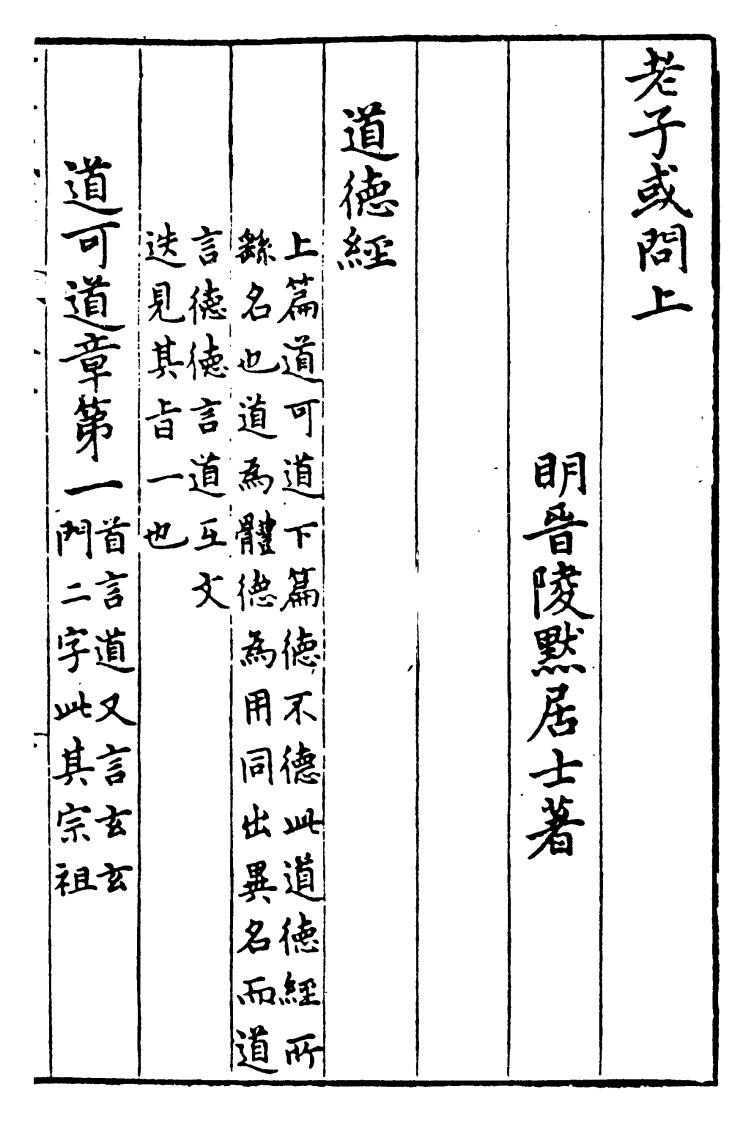 老子或問上
明晉陵默居士著
道德經
上篇道可道下篇德不德此道德經所
繇名也道為體德為用同出異名而道
言德德言道互文
迭見其旨一也
道可道章第一
首言道又言玄玄
門二字此其宗祖